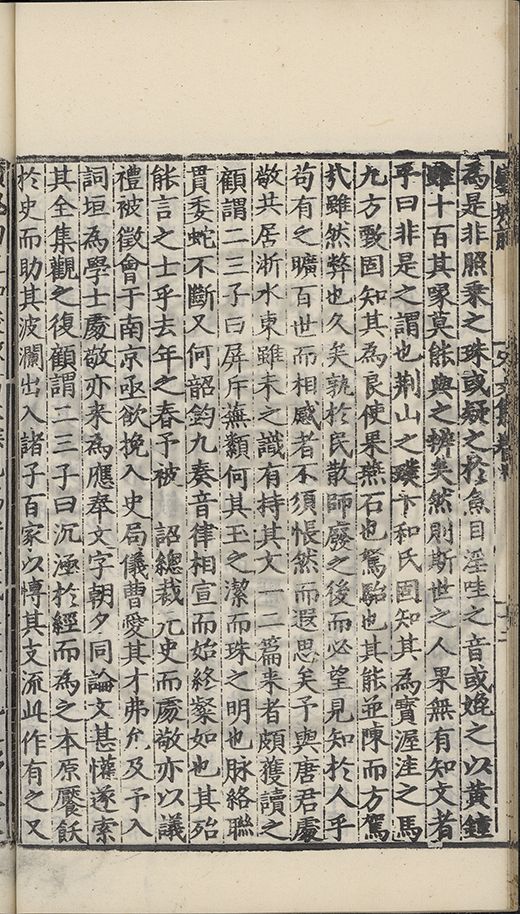 為是非照乗之珠或疑之於魚目淫哇之音或娩之以黃鐘
雖十百其喙莫能與之辨矣然則斯世之人果無有知文者
乎曰非是之謂也荆山之璞卞和氏固知其為寶渥洼之馬
九方歅固知其為良使果燕石也駑駘也其能並陳而方駕
㢤雖然弊也久矣孰於民散師廢之後而必望見知於人乎
茍有之曠百世而相感者不須悵然而遐思矣予與唐君處
敬共居浙水東雖未之識有持其文一二篇来者頗獲讀之
顧謂二三子曰屏斥蕪纇何其玉之潔而珠之明也脉絡聯
貫委蛇不斷又何韶鈞九奏音律相宣而始終粲如也其殆
能言之士乎去年之春予被詔總裁元史而處敬亦以議
禮被徵會于南京亟欲挽入史局儀曹愛其才弗允及予入
詞垣為學士處敬亦来為應奉文字朝夕同論文甚懽遂索
其全集觀之復顧謂二三子曰沉涵於經而為之本原饜飫
於史而助其波瀾出入諸子百家以博其支流此作有之又